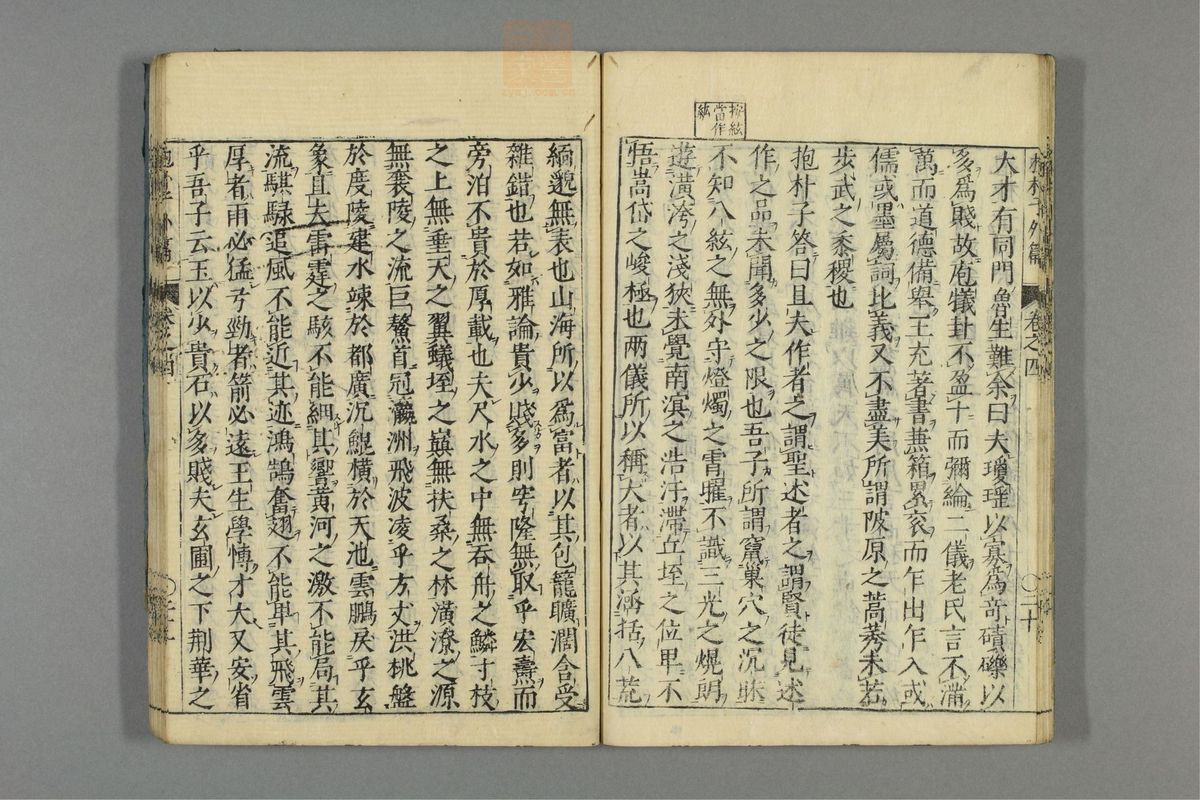 抱朴子外篇 卷之四 二十
大才有同門魯生難余曰夫瓊瑤以寡為奇磧礫以
多為賤故庖犧卦不盈十而彌綸二儀老氏言不滿
萬而道德備舉王充著書兼箱累袠而乍出乍入或
儒或墨屬詞比義又不盡美所謂陂原之蒿莠未若
步武之黍稷也
抱朴子答曰且夫作者之謂聖述者之謂賢徒見述
作之品未聞多少之限也吾子所謂竄巢穴之沉昧
不知八紘之無外守燈燭之霄曜不識三光之熀朗
遊潢洿之淺狹未覺南溟之浩汗滯丘垤之位卑不
悟嵩岱之峻極也兩儀所以稱大者以其涵括八荒
緬邈無表也山海所以為富者以其包籠曠濶含受
雜錯也若如雅論貴少賤多則穹隆無取乎宏燾而
旁泊不貴於厚載也夫尺水之中無吞舟之鱗寸枝
之上無垂天之翼蟻垤之巔無扶桑之林潢潦之源
無襄陵之流巨鰲首冠瀛洲飛波凌乎方丈洪桃盤
於度陵建水竦於都廣沉鯤橫於天池雲鵬戾乎玄
象且夫雷霆之駭不能細其響黃河之激不能局其
流騏騄追風不能近其迹鴻鵠奮翅不能卑其飛雲
厚者雨必猛弓勁者箭必遠王生學博才大又安省
乎吾子云玉以少貴石以多賤夫玄圃之下荊華之
卷之四